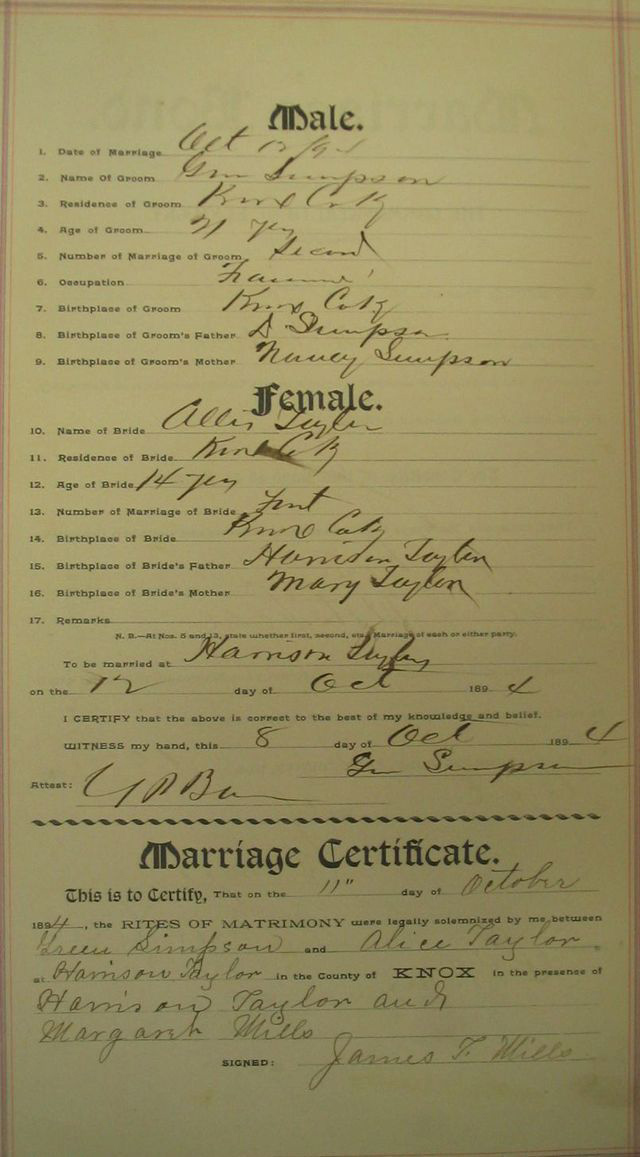 Male.
1. Date of Marriage Oct 12/94
2. Name Of Groom Grn Simpson
3. Residence of Groom Knox Co Ky
4. Age of Groom 21 yrs
5. Number of Marriage of Groom Second
6. Occupation Farmer
7. Birthplace of Groom Knox Co Ky
8. Birthplace of Groom's Father Simpson
9. Birthplace of Groom's Mother Nancy Simpson
Female.
10. Name of Bride Allis Taylor
11. Residence of Bride Knox Co Ky
12. Age of Bride 14 yrs
13. Number of Marriage of Bride First
14. Birthplace of Bride Knox Co Ky
15. Birthplace of Bride's Father Harrison Taylor
16. Birthplace of Bride's Mother Mary Taylor
17. Remarks
N. B.—At Nos. 5 and 13, state whether first, second, etc., Marriage of each or either party.
To be married at Harrison Taylors
on the 12 day of Oct 1894
I CERTIFY that the above is correct to the best of my knowledge and belief.
WITNESS my hand, this 8 day of Oct 1894
Grn Simpson
Attest:
Marriage Certificate.
This is to Certify, That on the 11" day of October
1894, the RITES OF MATRIMONY were legally solemnized by me between
Green Simpson and Alice Taylor
at Harrison Taylor in the County of KNOX in the presence of
Harrison Taylor and
Margaret Mills
SIGNED: James F. Mills